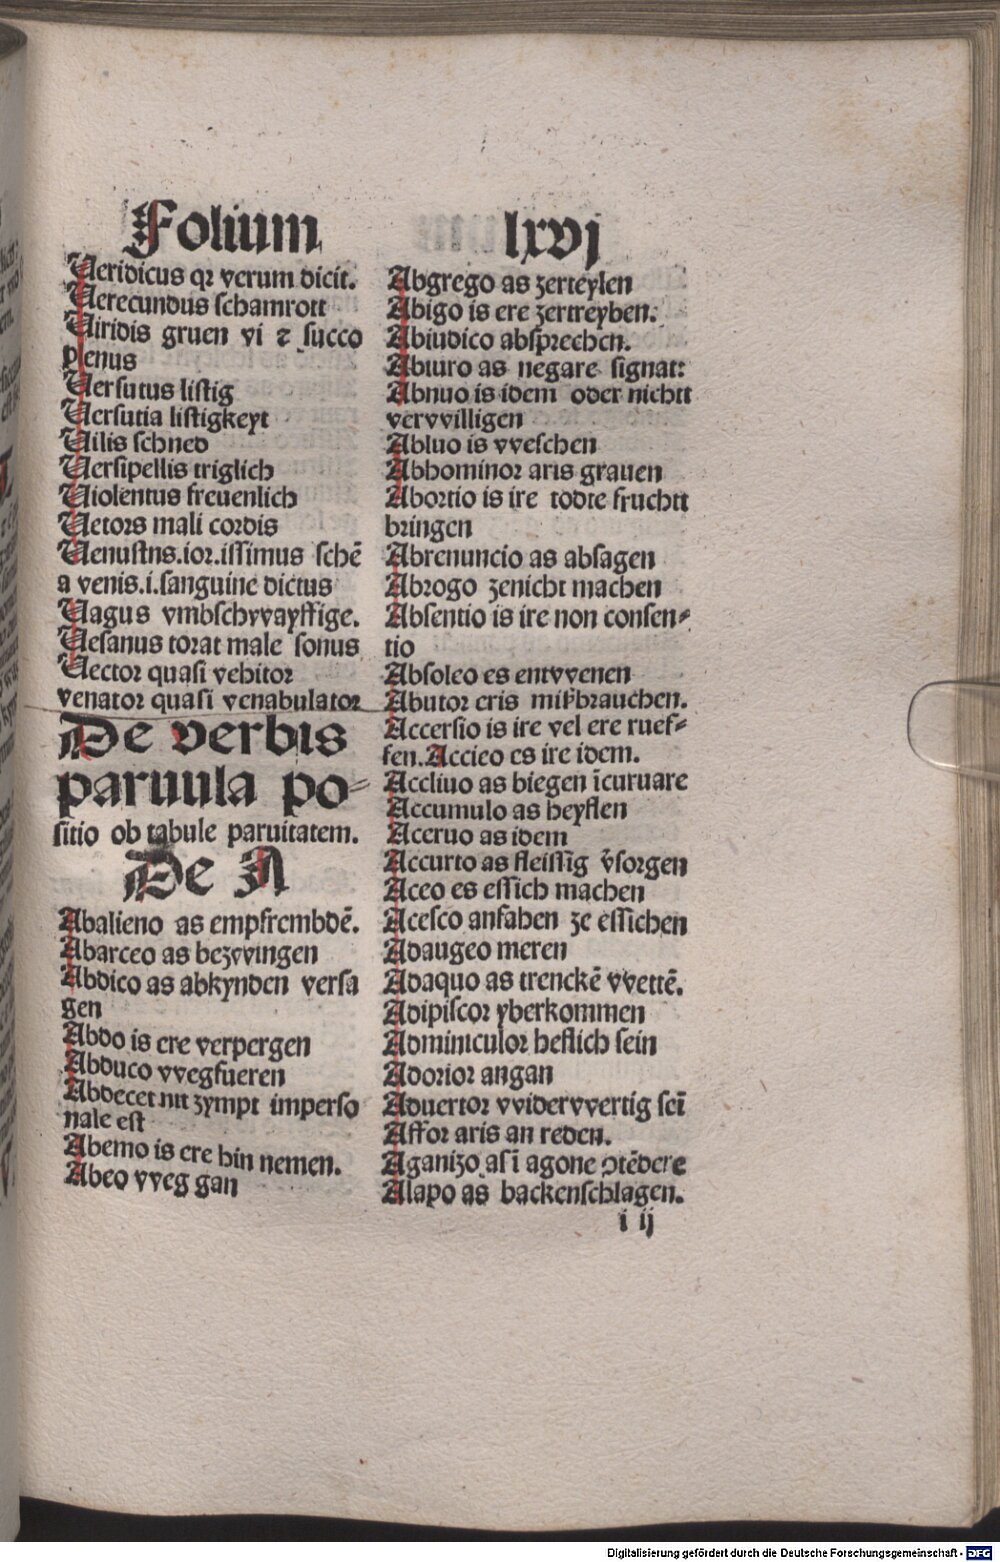 Folium lxvj
Ueridicus qꝛ verum dicit.
Uerecundus schamrott
Uiridis gruen vi ⁊ succo
plenus
Uersutus listig
Uersutia listigkeyt
Uilis schned
Uersipellis triglich
Uiolentus freuenlich
Uetors mali cordis
Uenustns.ior.issimus schē
a venis.i.sanguine dictus
Uagus vmbschvvayffige.
Uesanus torat male sonus
Uector quasi vehitor
venator quasi venabulator
De verbis
paruula po⸗
sitio ob tabule paruitatem.
De A
Abalieno as empfrembdē.
Abarceo as bezvvingen
Abdico as abkynden versa
gen
Abdo is ere verpergen
Abduco vvegfueren
Abdecet nit zympt imperso
nale est
Abemo is ere hin nemen.
Abeo vveg gan
Abgrego as zerteylen
Abigo is ere zertreyben.
Abiudico absprechen.
Abiuro as negare signat:
Abnuo is idem oder nichtt
vervvilligen
Abluo is vveschen
Abhominor aris grauen
Abortio is ire todte fruchtt
bringen
Abrenuncio as absagen
Abrogo zenicht machen
Absentio is ire non consen⸗
tio
Absoleo es entvvenen
Abutor eris mißbrauchen.
Accersio is ire vel ere ruef⸗
fen. Accieo es ire idem.
Accliuo as biegen īcuruare
Accumulo as heyflen
Aceruo as idem
Accurto as fleissig v̄sorgen
Aceo es essich machen
Acesco anfahen ze essichen
Adaugeo meren
Adaquo as trenckē vvettē.
Adipiscor yberkommen
Adminiculor heflich sein
Adorior angan
Aduertor vvidervvertig sei
Affor aris an reden.
Aganizo as i agone ↄtēdere
Alapo as backenschlagen.
i ij
Digitalisierung gefördert durch die Deutsche Forschungsgemeinschaft - DFG